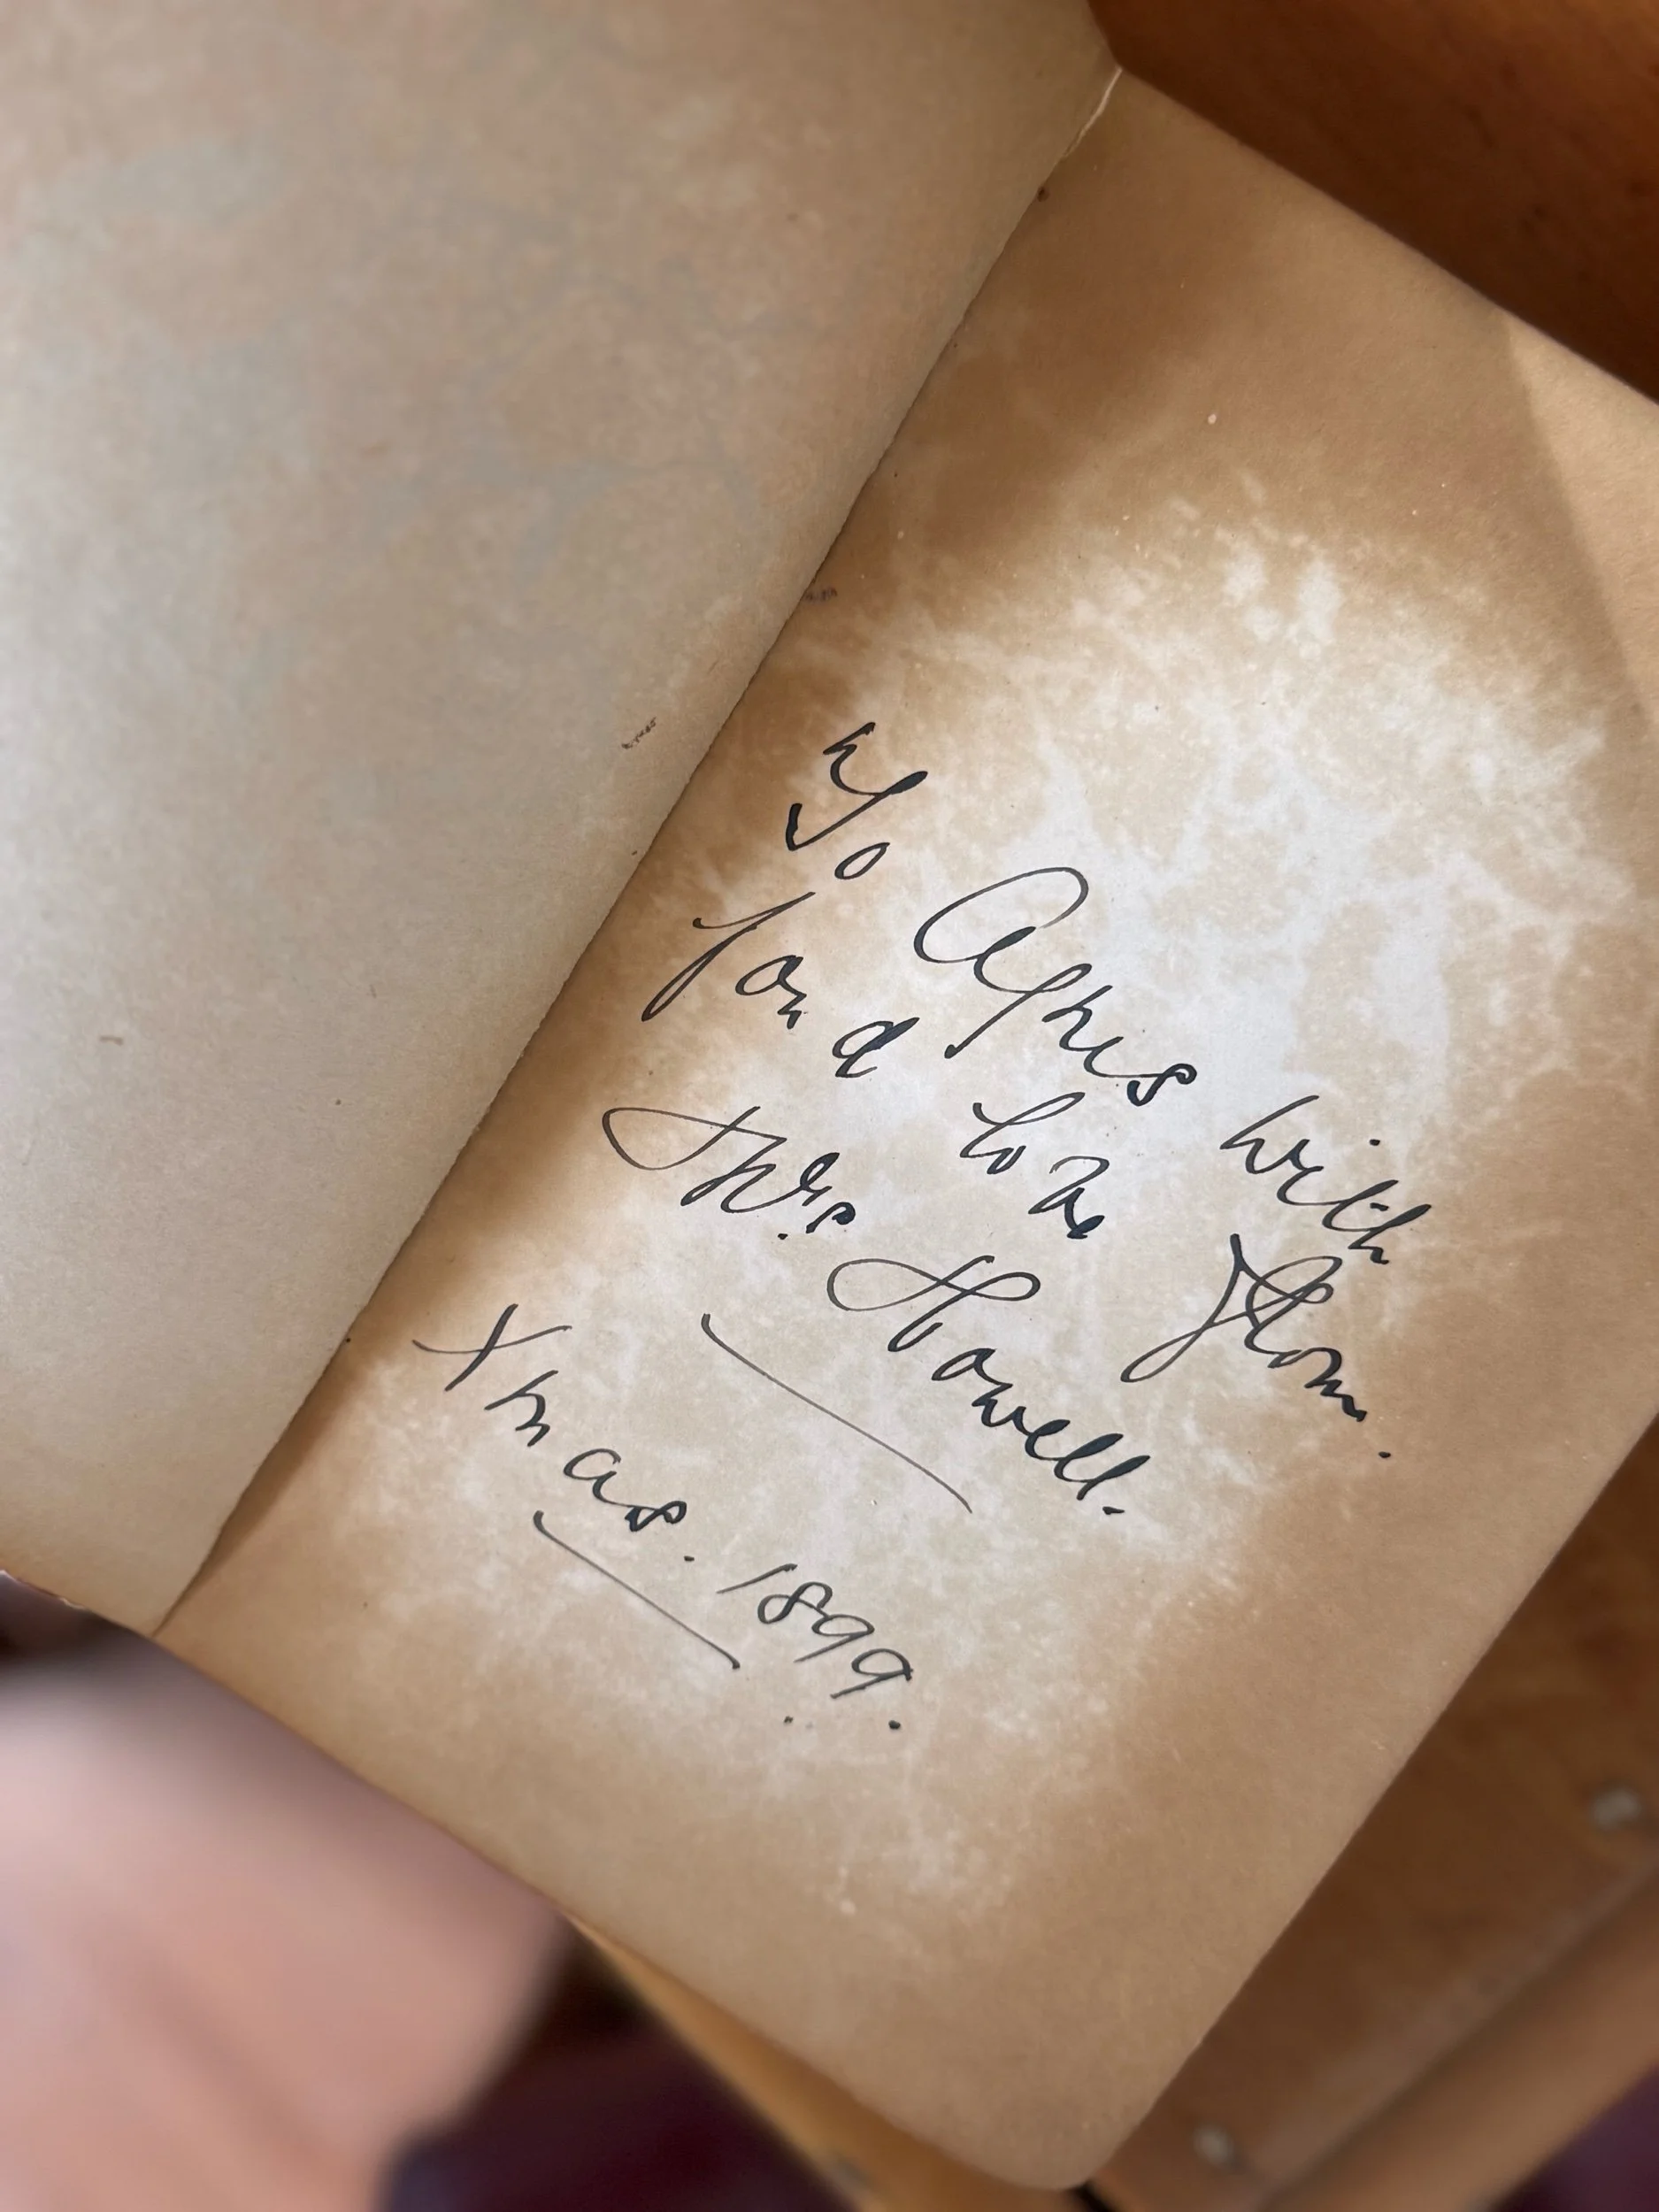 To Agnes with
fond love from.
Mrs. Howell.
Xmas. 1899.